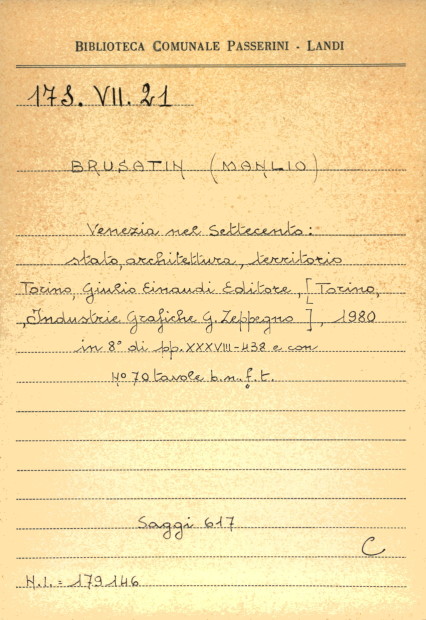 BIBLIOTECA COMUNALE PASSERINI - LANDI
173. VII. 21
BRUSATIN (MANLIO)
Venezia nel Settecento:
stato, architettura, territorio
Torino, Giulio Einaudi Editore, [Torino,
Industrie Grafiche G. Zeppegno], 1980
in 8° di pp. XXXVIII-438 e con
N° 70 tavole b.n.f.t.
Saggi 617
C
N.I. = 179146